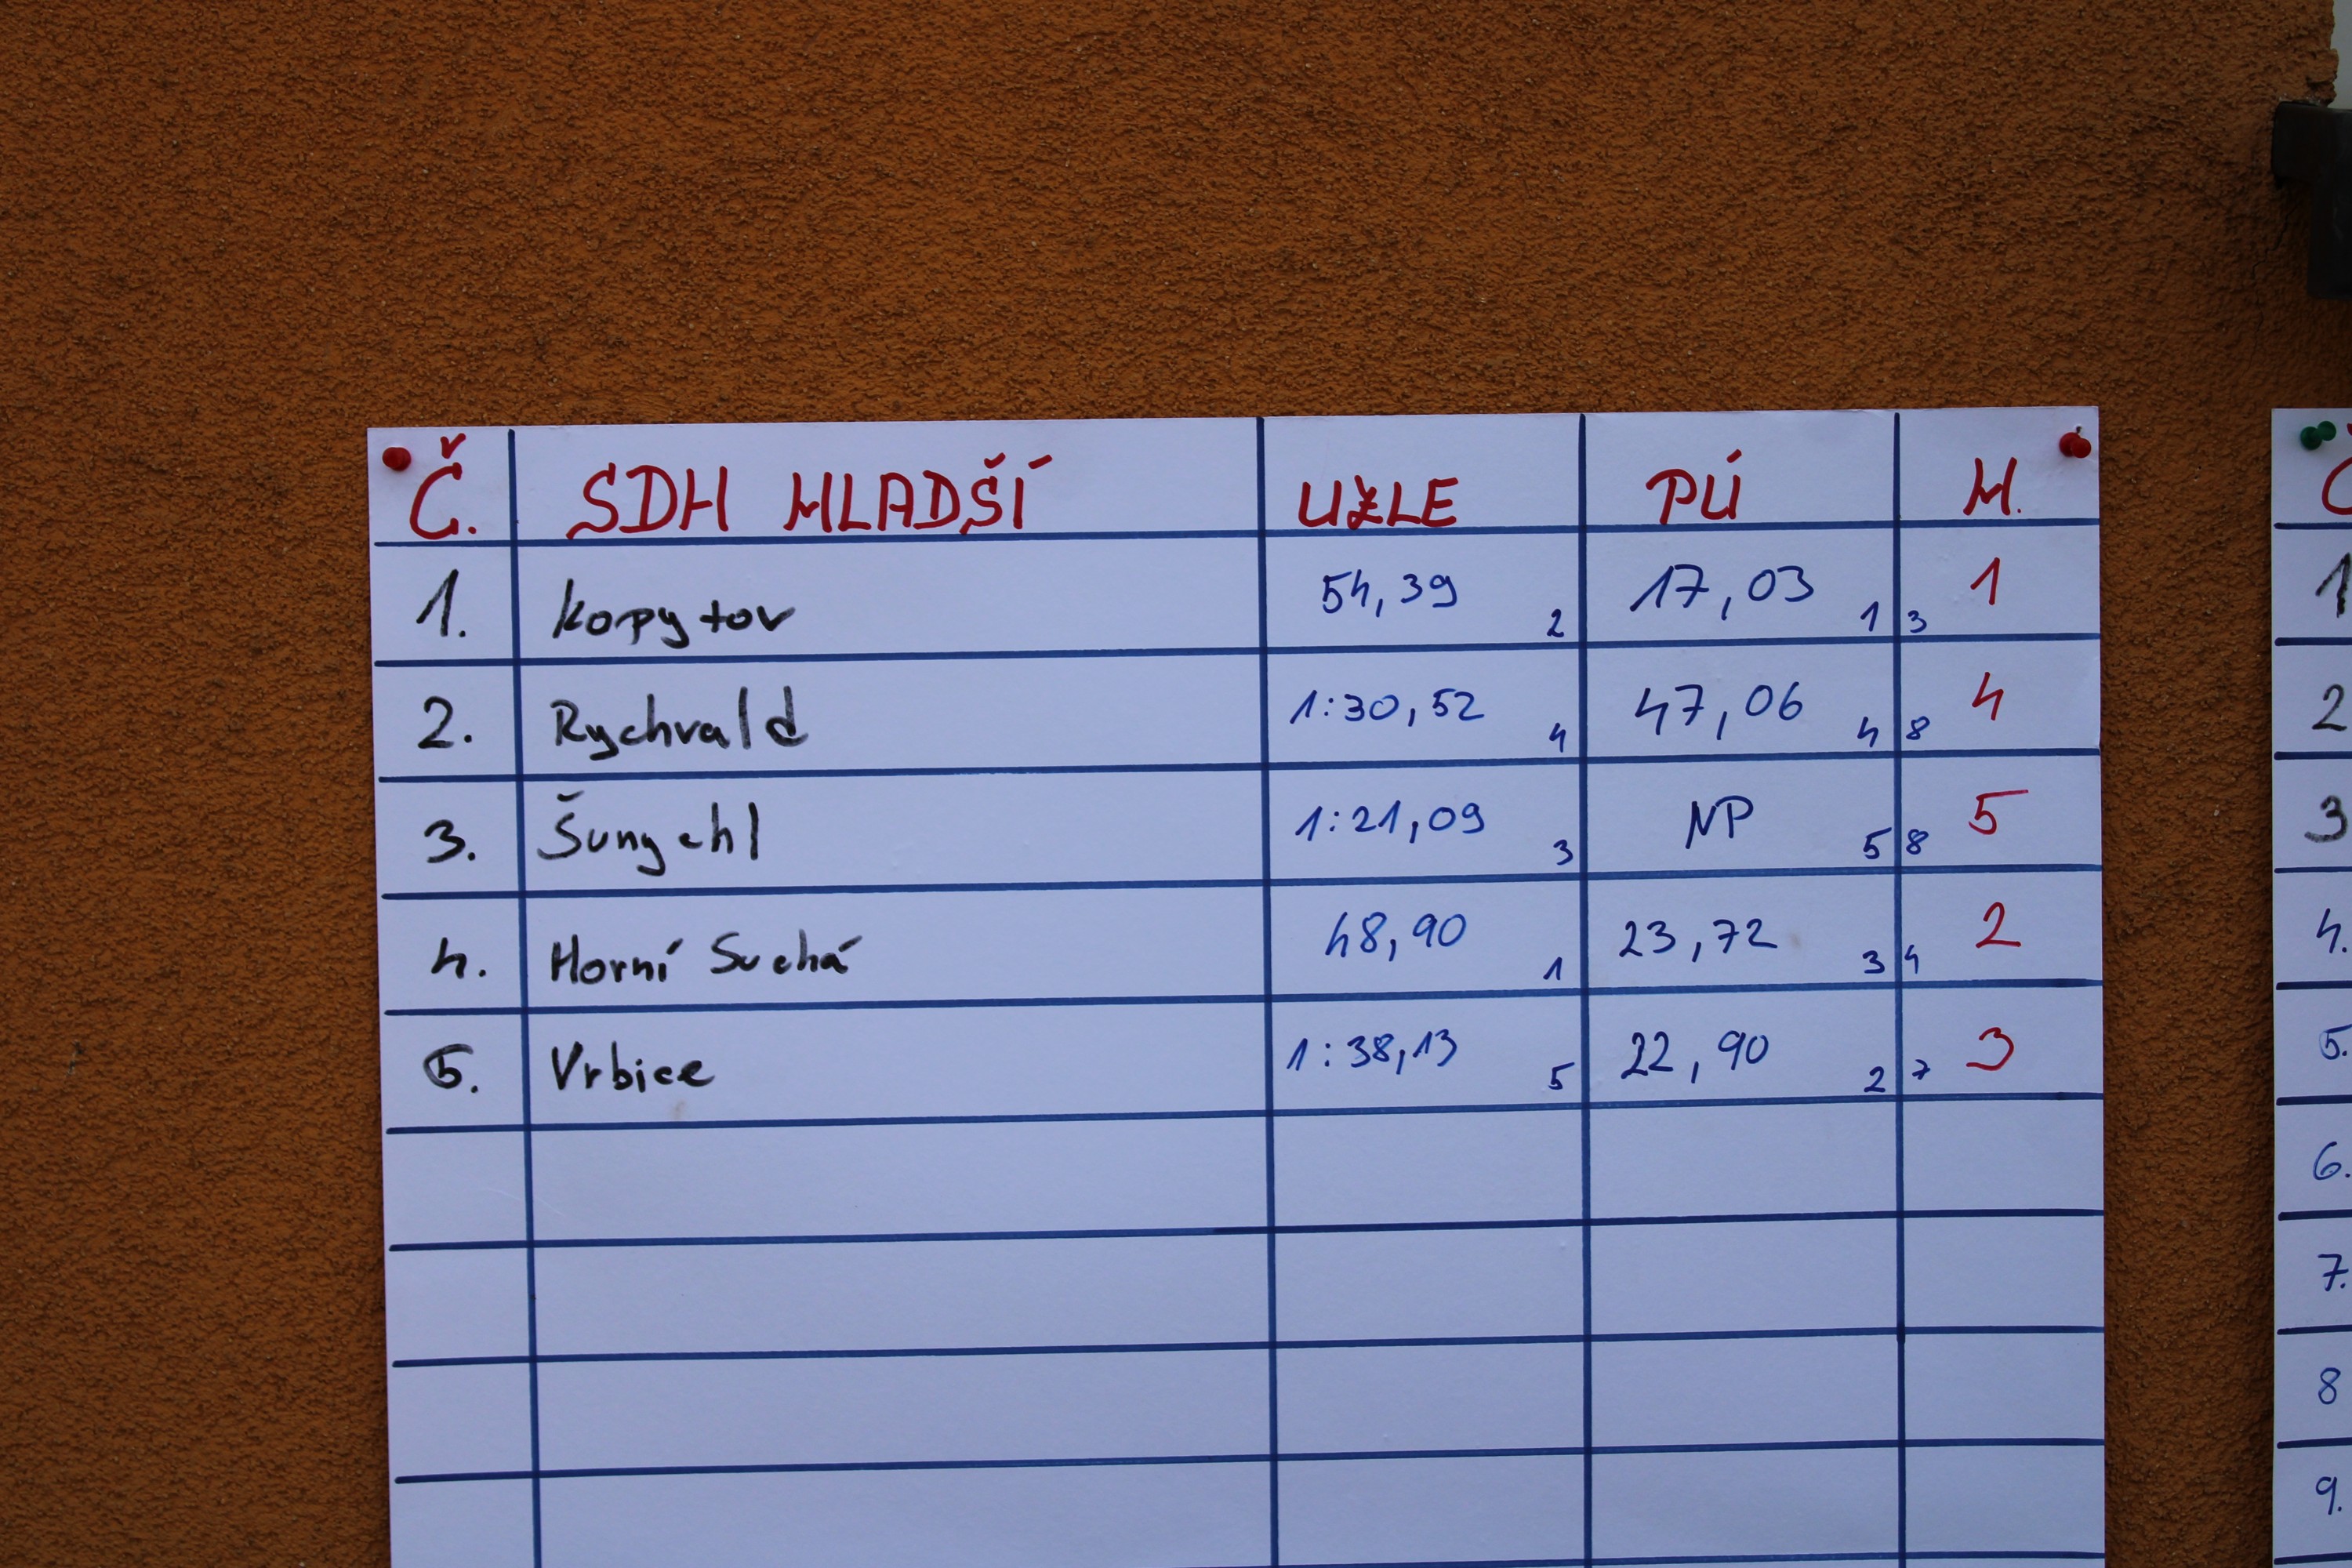 Č. SDH MLADŠÍ UZLE PÚ M.
1. Kopytov 54,39 2 17,03 1 3 1
2. Rychvald 1:30,52 4 47,06 4 8 4
3. Šungehl 1:21,09 3 NP 5 8 5
4. Horní Suchá 48,90 1 23,72 3 4 2
5. Vrbice 1:38,13 5 22,90 2 7 3
1
2
3
4.
5.
6.
7.
8
9.